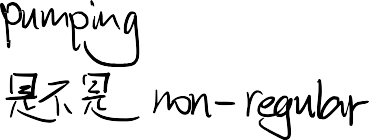 pumping
是不是 non-regular